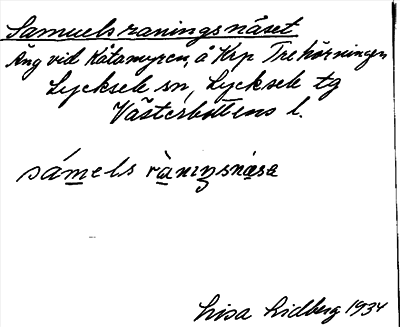 Samuelsraningsnäset
Äng vid Kåtamyren, å Krp Trehörningen
Lycksele sn, Lycksele tg
Västerbottens l.
sámels ràningsnàsa
Lisa Lidberg 1934